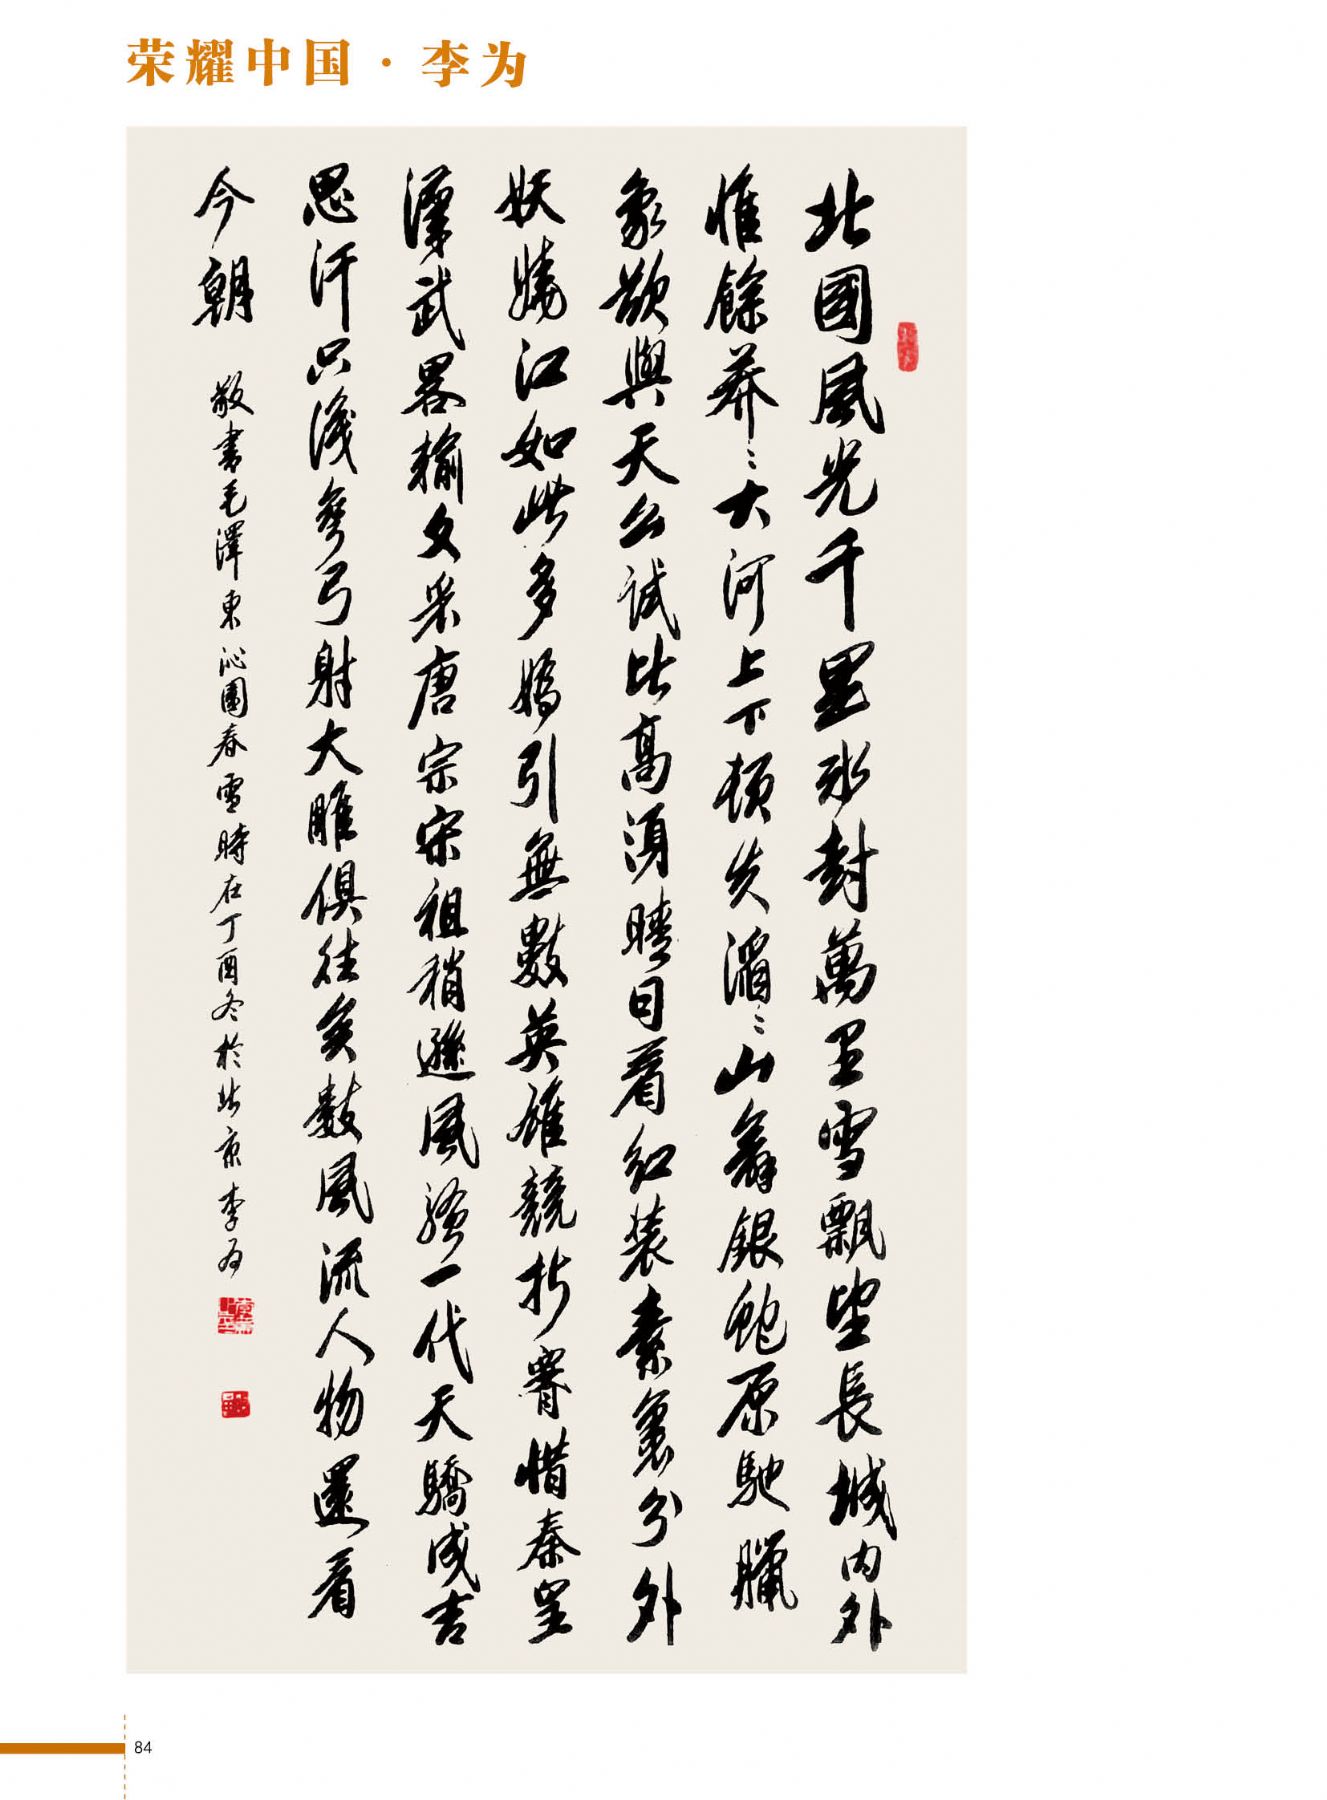 荣耀中国·李为
北國風光千里冰封萬里雪飄望長城内外
惟餘莽〻大河上下頓失滔〻山舞銀蛇原馳臘
象欲與天公試比高須晴日看紅装素裹分外
妖嬈江如此多嬌引無數英雄競折腰惜秦皇
漢武畧輸文采唐宗宋祖稍遜風騷一代天驕成吉
思汗只識彎弓射大雕俱往矣數風流人物還看
今朝
敬書毛澤東沁園春雪時在丁酉冬於北京李為
84